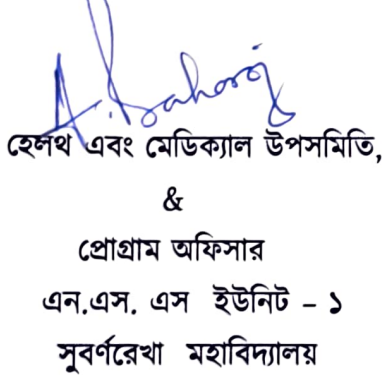 হেলথ এবং মেডিক্যাল উপসমিতি,
&
প্রোগ্রাম অফিসার
এন.এস. এস ইউনিট - ১
সুবর্ণরেখা মহাবিদ্যালয়